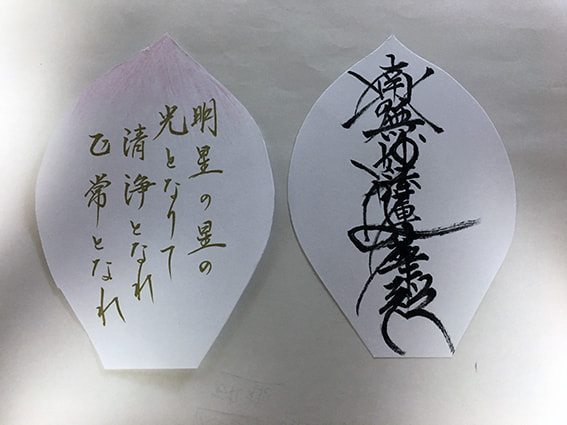 明星の星の
光となりて
清浄となれ
正常となれ
南無妙法蓮華経